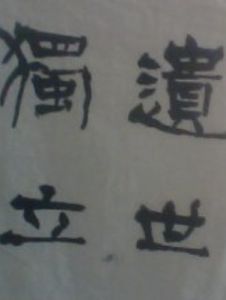 遺世
獨立